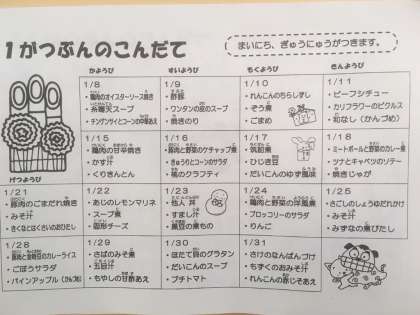 1がつぶんのこんだて
まいにち、ぎゅうにゅうがつきます。
かようび
すいようび
もくようび
きんようび
1/8
・鶏肉のオイスターソース焼き
・糸寒天スープ
・チンゲンサイとコーンの中華あえ
1/9
・酢豚
・ワンタンの皮のスープ
・焼きのり
1/10
・れんこんのちらしずし
・そう煮
・ごまめ
1/11
・ビーフシチュー
・カリフラワーのピクルス
・和なし(かんづめ)
1/15
・鶏肉の甘辛焼き
・かす汁
・くりきんとん
1/16
・豚肉と野菜のケチャップ煮
・きゅうりとコーンのサラダ
・桃のクラフティ
1/17
・筑前煮
・ひじき豆
・だいこんのゆず風味
1/18
・ミートボールと野菜のカレー煮
・ツナとキャベツのソテー
・焼きじゃが
げつようび
1/21
・豚肉のごまだれ焼き
・みそ汁
・きくなとはくさいのおひたし
1/22
・あじのレモンマリネ
・スープ煮
・固形チーズ
1/23
・他人丼
・すまし汁
・黒豆の煮もの
1/24
・鶏肉と野菜の洋風煮
・ブロッコリーのサラダ
・りんご
1/25
・さごしのしょうゆだれかけ
・みそ汁
・みずなの煮びたし
1/28
・豚肉と金時豆のカレーライス
・ごぼうサラダ
・パインアップル(かんづめ)
1/29
・さばのみそ煮
・五目汁
・もやしの甘酢あえ
1/30
・ほたて貝のグラタン
・だいこんのスープ
・プチトマト
1/31
・さけのなんばんづけ
・もずくのおみそ汁
・れんこんの赤じそあえ